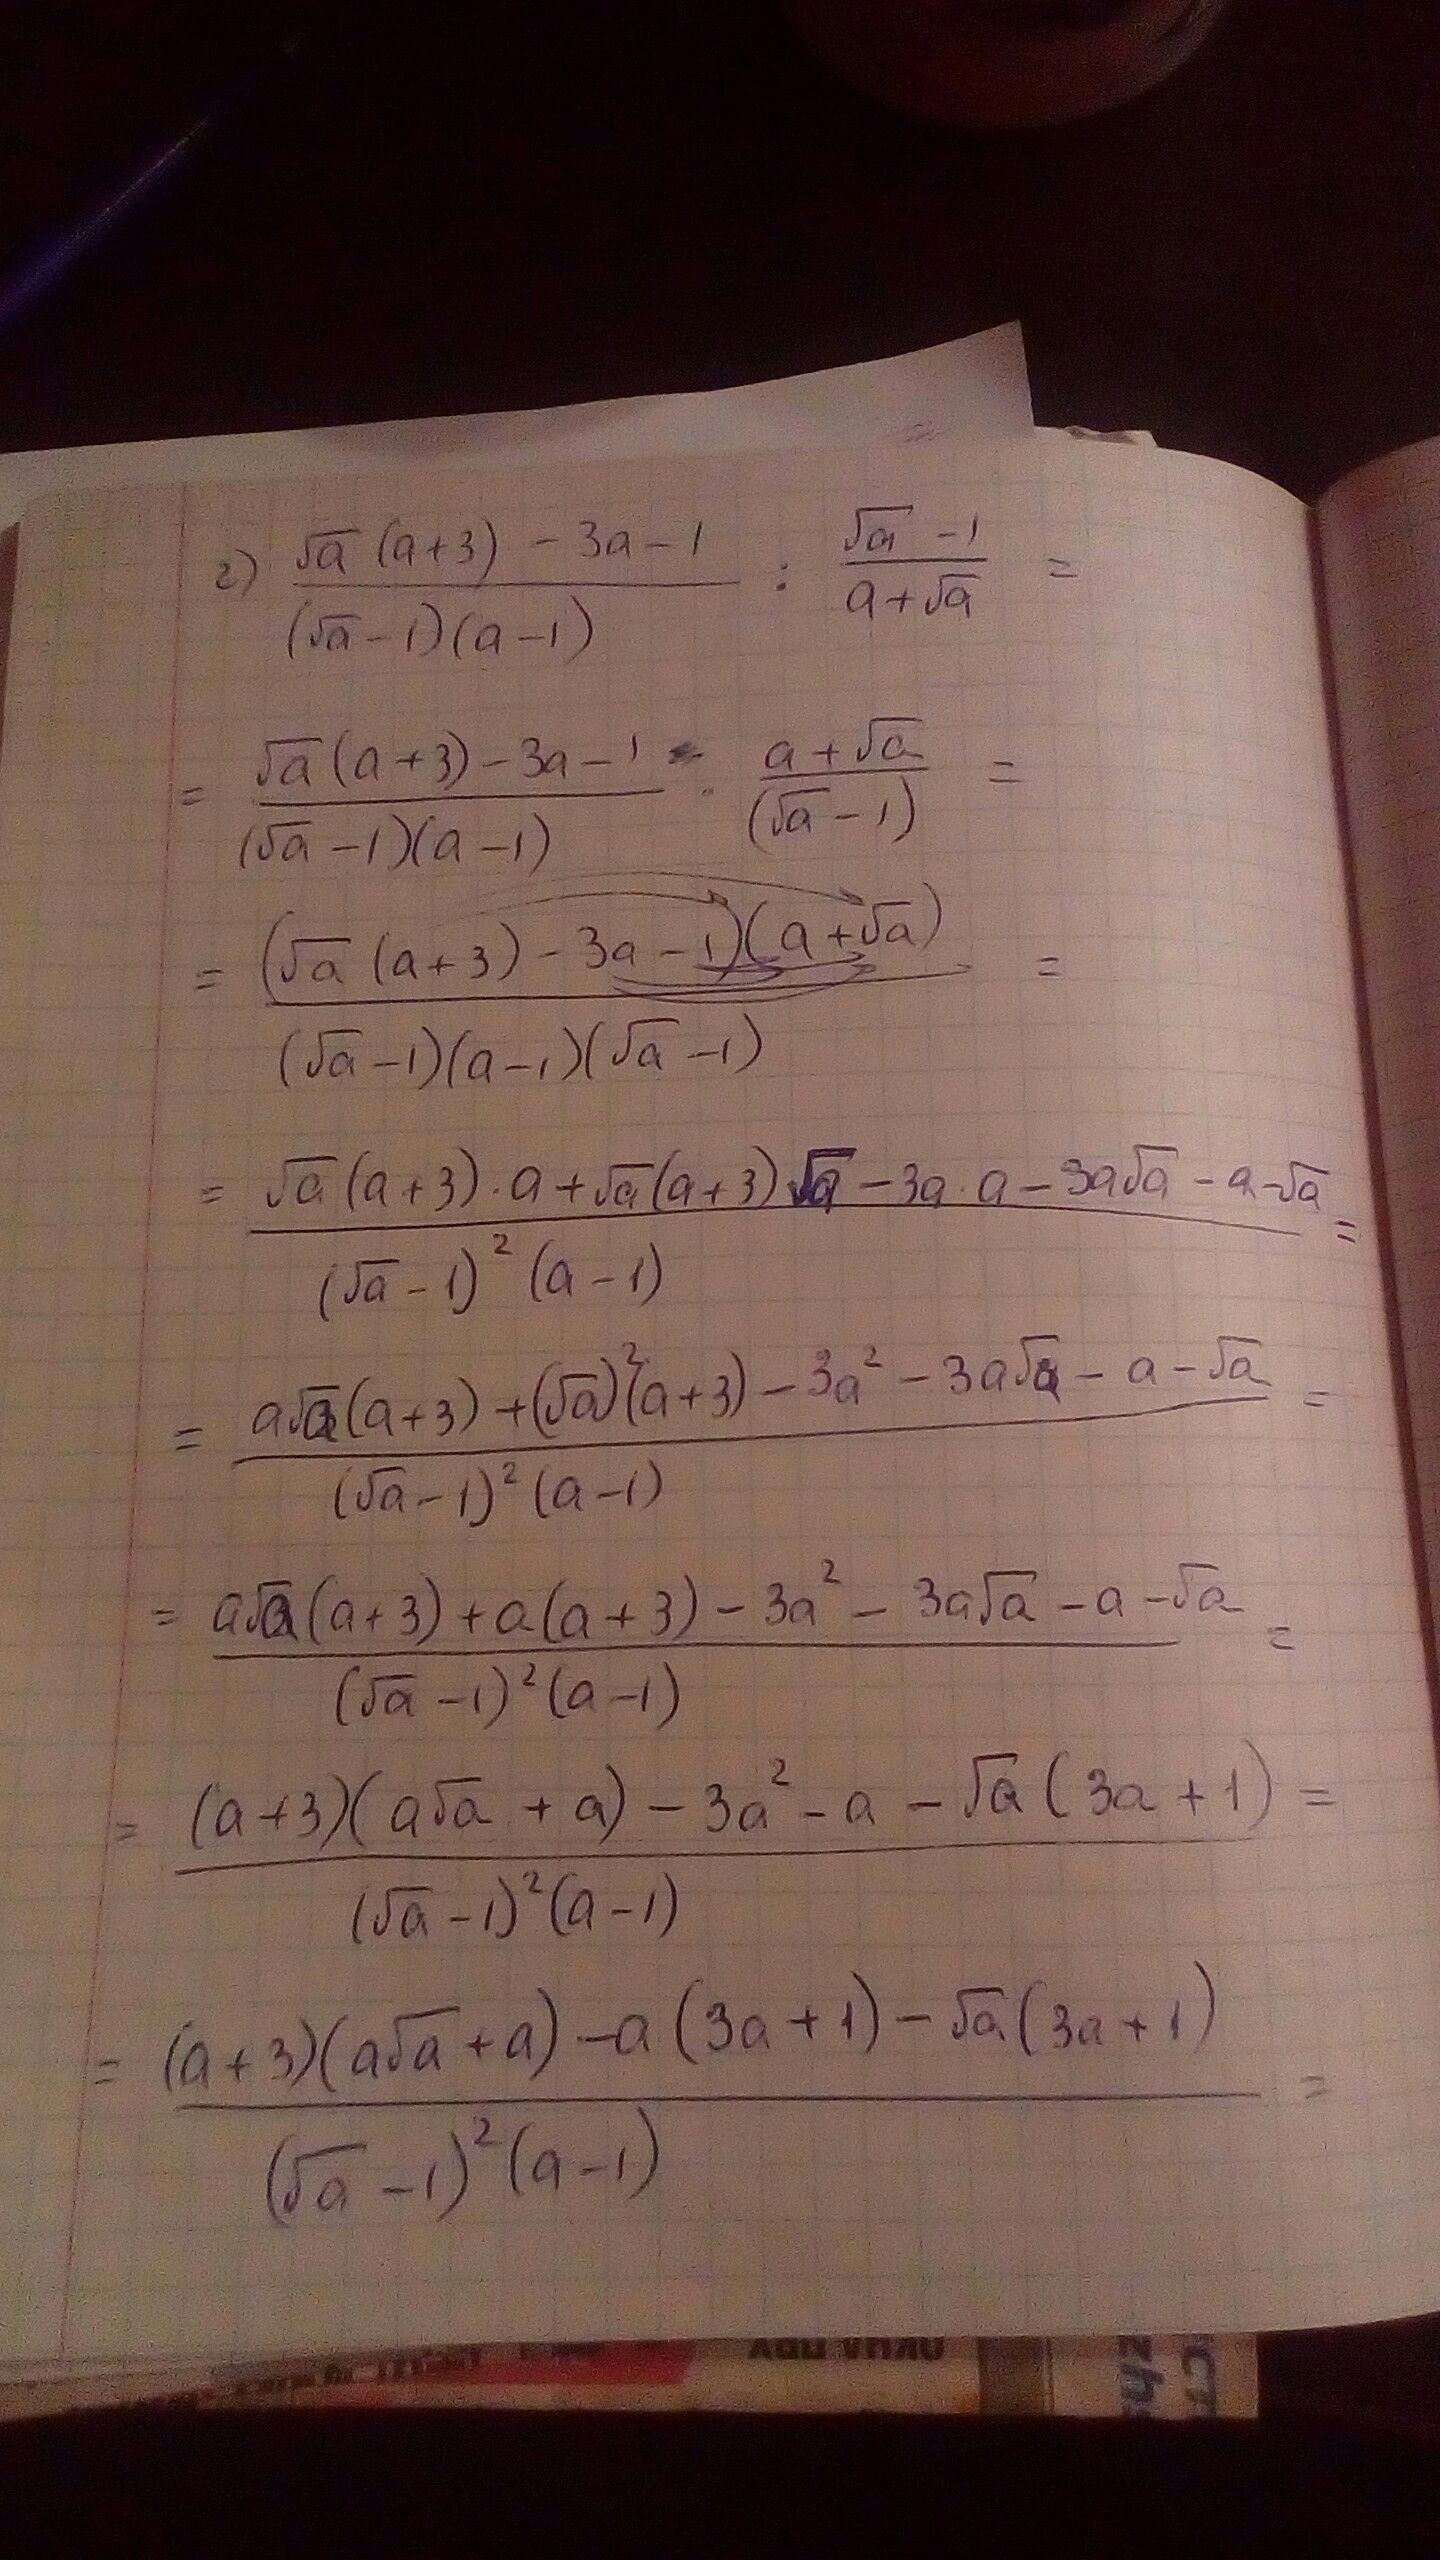 г) (√a (a+3) - 3a - 1) / ((√a - 1)(a - 1)) : (√a - 1) / (a + √a) =
= (√a (a+3) - 3a - 1) / ((√a - 1)(a - 1)) · (a + √a) / (√a - 1) =
= (√a (a+3) - 3a - 1)(a + √a) / ((√a - 1)(a - 1)(√a - 1)) =
= (√a (a+3) · a + √a (a+3) √a - 3a · a - 3a√a - a - √a) / ((√a - 1)² (a - 1)) =
= (a√a (a+3) + (√a)² (a+3) - 3a² - 3a√a - a - √a) / ((√a - 1)² (a - 1)) =
= (a√a (a+3) + a (a+3) - 3a² - 3a√a - a - √a) / ((√a - 1)² (a - 1)) =
= ((a+3)(a√a + a) - 3a² - a - √a (3a + 1)) / ((√a - 1)² (a - 1)) =
= ((a+3)(a√a + a) - a (3a + 1) - √a (3a + 1)) / ((√a - 1)² (a - 1)) =
ОКНА ПВХ